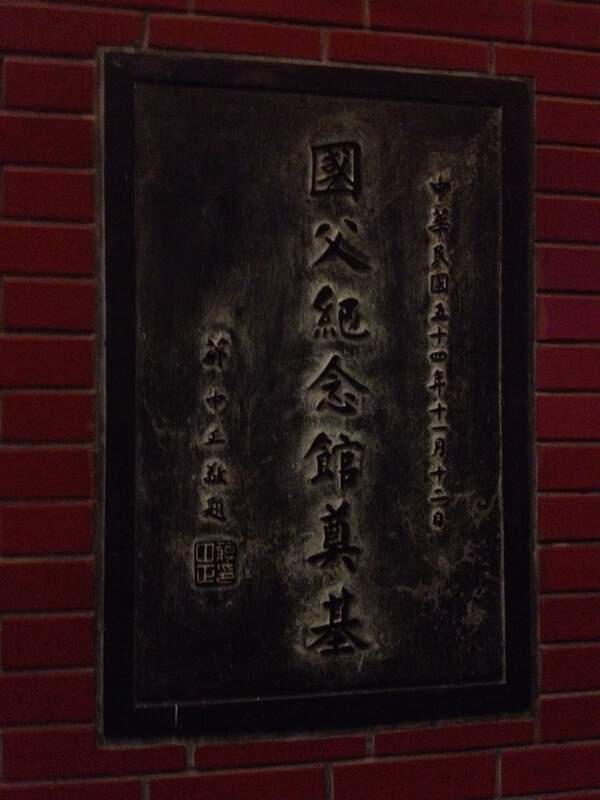 中華民國五十四年十一月十二日
國父紀念館奠基
蔣中正敬題
蔣中正印